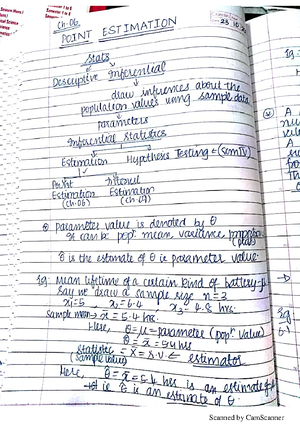 Ch-06
POINT ESTIMATION
Stats
Descriptive Inferential
draw inferences about the
population values using sample data
parameters
Inferential Statistics
Estimation Hypothesis Testing ← (Sem IV)
Point Interval
Estimation Estimation
(Ch-06) (Ch-07)
Parameter value is denoted by θ
It can be popⁿ mean, variance, proportion
θ̂ is the estimate of θ ie parameter value.
Eg: Mean lifetime of a certain kind of battery-μ
Say we draw a sample size n=3
x₁=5 x₂=6.4 x₃=4.8 hrs.
Sample mean → x̄ = 5.4 hrs.
Here, θ=μ=parameter (popⁿ value)
θ̂ = x̄ = 5.4 hrs
Statistic = X̄ = R.V. ← estimator
sample value)
Here, θ̂ = x̄ = 5.4 hrs is an estimate of μ
ie θ̂ is an estimate of θ.
Scanned by CamScanner